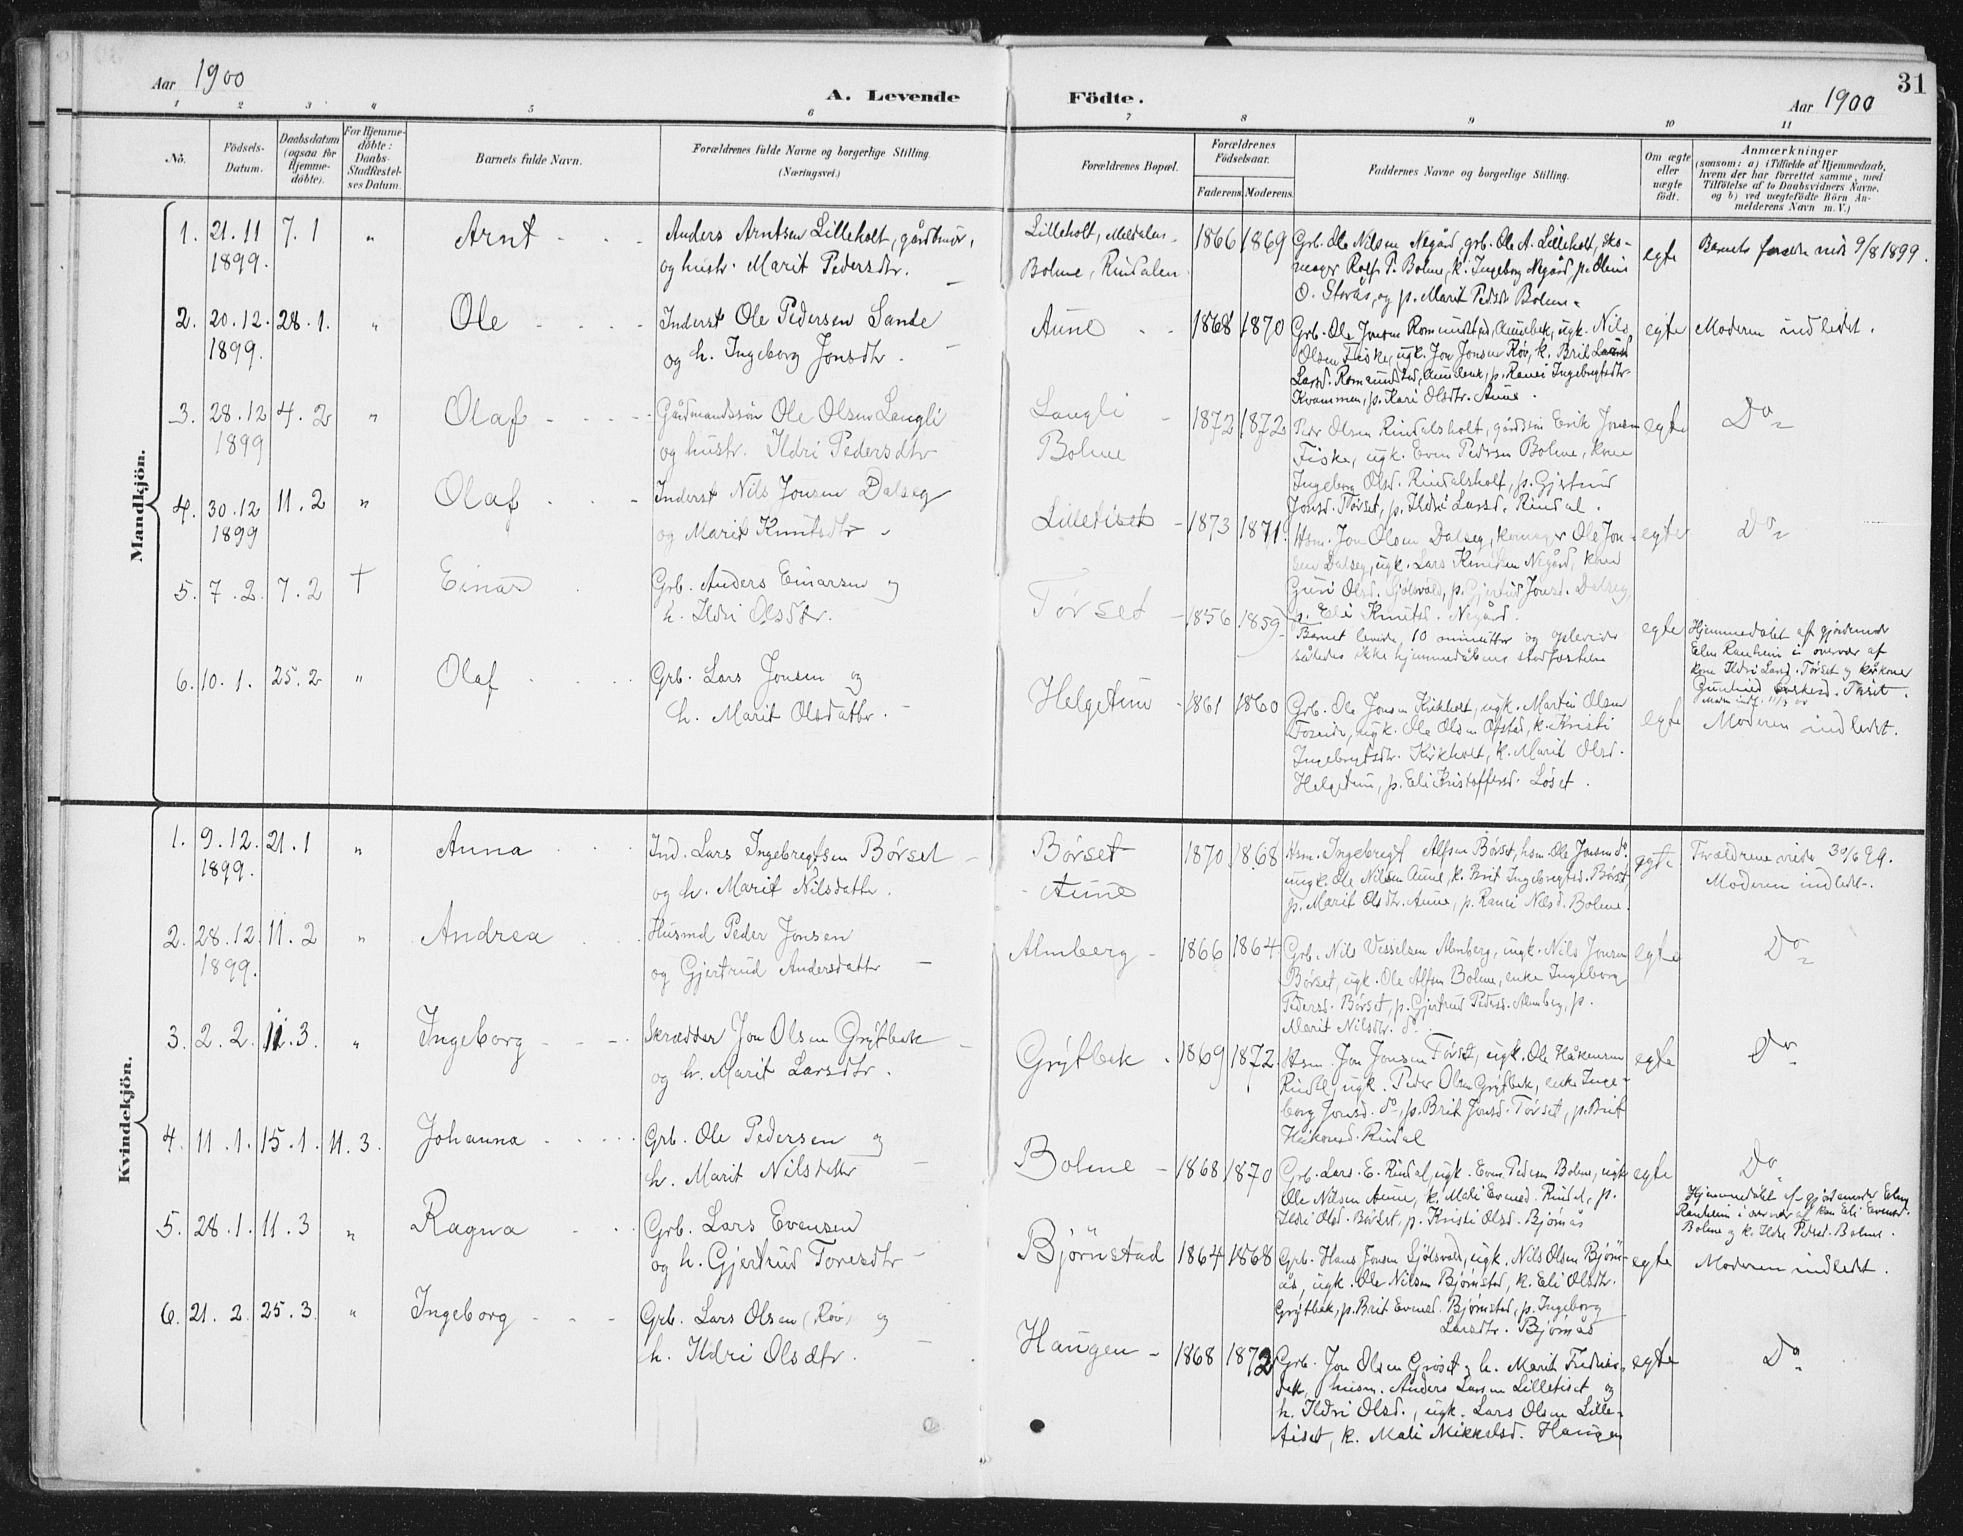 Aar 1900
A. Levende Födte.
Aar 1900
31
1 2 3 4 5 6 7 8 9 10 11
No.
Födsels-Datum.
Daabsdatum (ogsaa for Hjemme-döbte).
For Hjemme-döbte: Daabs-Stadfæstel-ses Datum.
Barnets fulde Navn.
Forældrenes fulde Navne og borgerlige Stilling. (Næringsvei.)
Forældrenes Bopæl.
Forældrenes Födselsaar.
Faderens. Moderens.
Faddernes Navne og borgerlige Stilling.
Om ægte eller uægte födt.
Anmærkninger
(saasom: a) i Tilfælde af Hjemmedaab, hvem der har forrettet samme, med Tilföielse af to Daabsvidners Navne, og b) ved uægtefödte Börn An-melderens Navn m. V.)
Mandkjön.
1. 21.11 1899. 7.1 " Arnt
Anders Arntsen Lilleholt, gårdbruk.,
og hustr. Marit Pedersdtr.
Lilleholt, Meldalen
Bolme, Rindalen
1866 1869
Grb. Ole Nilsen Negård, grb. Ole A. Lilleholt, sko-
mager Rolf P. Bolme, k. Ingeborg Negård, p. Oline
O. Storås, og p. Marit Pedsdr Bolme.
egte
Barnets foreldre viede 9/8 1899.
2. 20.12. 1899. 28.1. " Ole
Inderst Ole Pedersen Sande
og h. Ingeborg Jonsdtr.
Aune
1868 1870
Grb. Ole Jonsen Romundstad, Aunebek, ugk. Nils
Olsen Fiske, ugk. Jon Jonsen Røv, k. Brit
Larsd. Romundstad, Aunebek, p. Ranei Ingebrigtsdtr.
Kvammen, p. Kari Olsdtr. Aune.
egte
Moderen indledet.
3. 28.12 1899 4.2 " Olaf
Gårdmandssön Ole Olsen Langli
og hustr. Ildri Pedersdtr
Langli
Bolme
1872 1872
Peder Olsen Rindalsholt, gårdssön Erik Jonsen
Fiske, ugk. Even Pedersen Bolme, kone
Ingeborg Olsd. Rindalsholt, p. Gjertrud
Jonsd. Tørset, p. Ildri Larsd. Rindal.
egte
Do
4. 30.12 1899 11.2 " Olaf
Inderst Nils Jonsen Dalseg
og Marit Knutsdtr
Lilletiset
1873 1871.
Hsm. Jon Olsen Dalseg, Ole Jon-
sen Dalseg, ugk. Lars Knutsen Negård, kone
Guri Olsd. Sjølsvold, p. Gjertrud Jonsd. Dalseg,
p. Eli Knutsd. Negård.
egte
Do
5. 7.2. 7.2 † Einar
Grb. Anders Einarsen og
h. Ildri Olsdtr.
Tørset
1856 1859
Barnet levede 10 minutter og oplevede
således ikke hjemmedåbens stadfæstelse
egte
Hjemmedøbt af gjordemoder
Elen Ranheim i overvær af
kone Ildri Larsd. Tørset og kårkone
Gunhild Tørset.
6. 10.1. 25.2 " Olaf
Grb. Lars Jonsen og
h. Marit Olsdatter.
Helgetun
1861 1860
Grb. Ole Jonsen Kirkholt, ugk. Martin Olsen
ugk. Ole Olsen k. Kristi
Ingebrigtsdtr. Kirkholt, k. Marit Olsd.
Helgetun, p. Eli Kristoffersd. Løset.
egte
Moderen indledet.
Kvindekjön.
1. 9.12. 1899. 21.1 " Anna
Ind. Lars Ingebregtsen Børset
og h. Marit Nilsdatter.
Børset
Aune
1870 1868
Hsm. Ingebrigt Alfsen Børset, hsm. Ole Jonsen do,
ungk. Ole Nilsen Aune, k. Brit Ingebrigtsd. Børset,
p. Marit Olsdtr. Aune, p. Ranei Nilsd. Bolme.
egte
Forældrene viede 30/6 99.
Moderen indledet.
2. 28.12. 1899. 11.2 " Andrea
Husmd Peder Jonsen
og Gjertrud Andersdatter
Almberg
1866 1864
Grb. Nils Vesselsen Almberg, ungk. Nils Jonsen
Børset, ugk. Ole Alfsen Bolme, enke Ingeborg
Pedersd. Børset, p. Gjertrud Pedersd. Almberg, p.
Marit Nilsdtr. do.
egte
Do
3. 2.2. 11.3. " Ingeborg
Skrædder Jon Olsen Grytbek
og h. Marit Larsdtr.
Grytbek.
1869 1872.
Hsm. Jon Jonsen Tørset, ugk. Ole Håkensen
Rindal, ugk. Peder Olsen Grytbek, enke Inge-
borg Jonsd. do, p. Brit Jonsd. Tørset, p. Brit
Håkensd. Rindal
egte
Do
4. 11.1. 15.1. 11.3. Johanna
Grb. Ole Pedersen og
h. Marit Nilsdatter
Bolme
1868 1870
Grb. Lars E. Rindal, ugk. Even Pedersen Bolme, ugk.
Ole Nilsen Aune, k. Mali Evensd. Rindal, p.
Ildri Olsd. Børset, p. Kristi Olsd. Bjørnås
egte
Do
Hjemmedøbt af gjordemoder Elen
Ranheim i overvær af kone Eli Evensd.
Bolme og k. Ildri Pedersd. Bolme.
5. 28.1. 11.3 " Ragna
Grb. Lars Evensen
og h. Gjertrud Toresdtr
Bjørnstad
1864 1868
Grb. Hans Jonsen Sjølsvold, ugk. Nils Olsen Bjørn-
ås, ugk. Ole Nilsen Bjørnstad, k. Eli Olsdtr.
Grytbek, p. Brit Evensd. Bjørnstad, p. Ingeborg
Larsdtr. Bjørnås
egte
Moderen indledet.
6. 21.2. 25.3. " Ingeborg
Grb. Lars Olsen (Røv) og
h. Ildri Olsdtr.
Haugen
1868 1872
Grb. Jon Olsen Grøset og h. Marit
husm. Anders Larsen Lilletiset og
h. Ildri Olsd., ugk. Lars Olsen Lille-
tiset, k. Mali Mikkelsd. Haugen
egte
Do